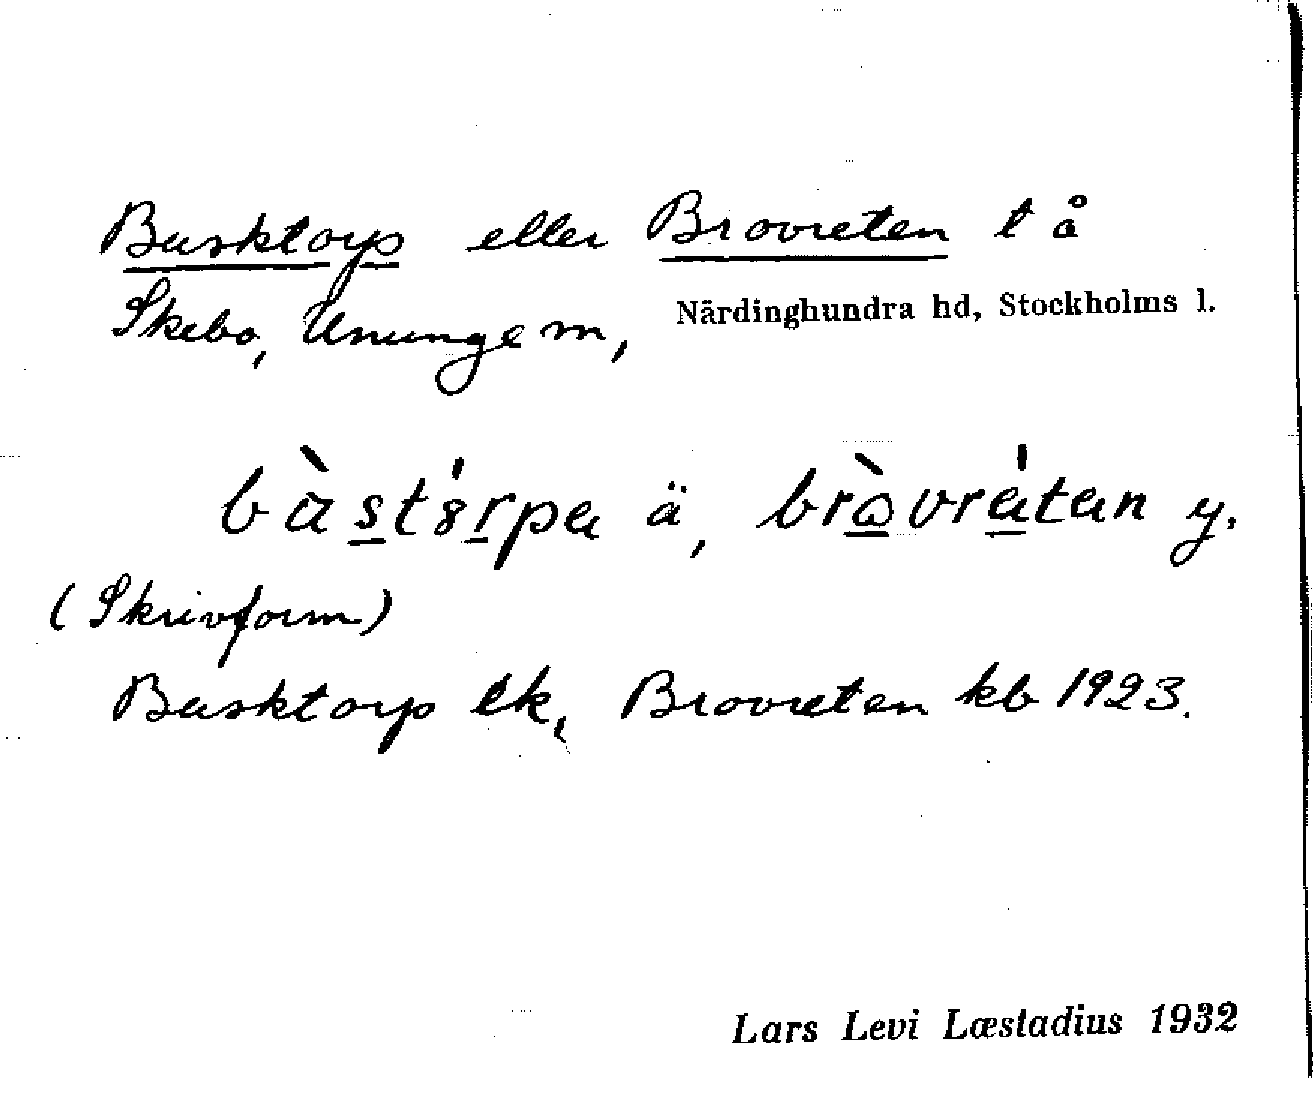 Busktorp eller Brovreten t å
Skebo, Ununge sn, Närdinghundra hd, Stockholms l.
bàstórpa ä, bròvrátan y.
(Skrivform)
Busktorp ek, Brovreten kb 1923.
Lars Levi Læstadius 1932